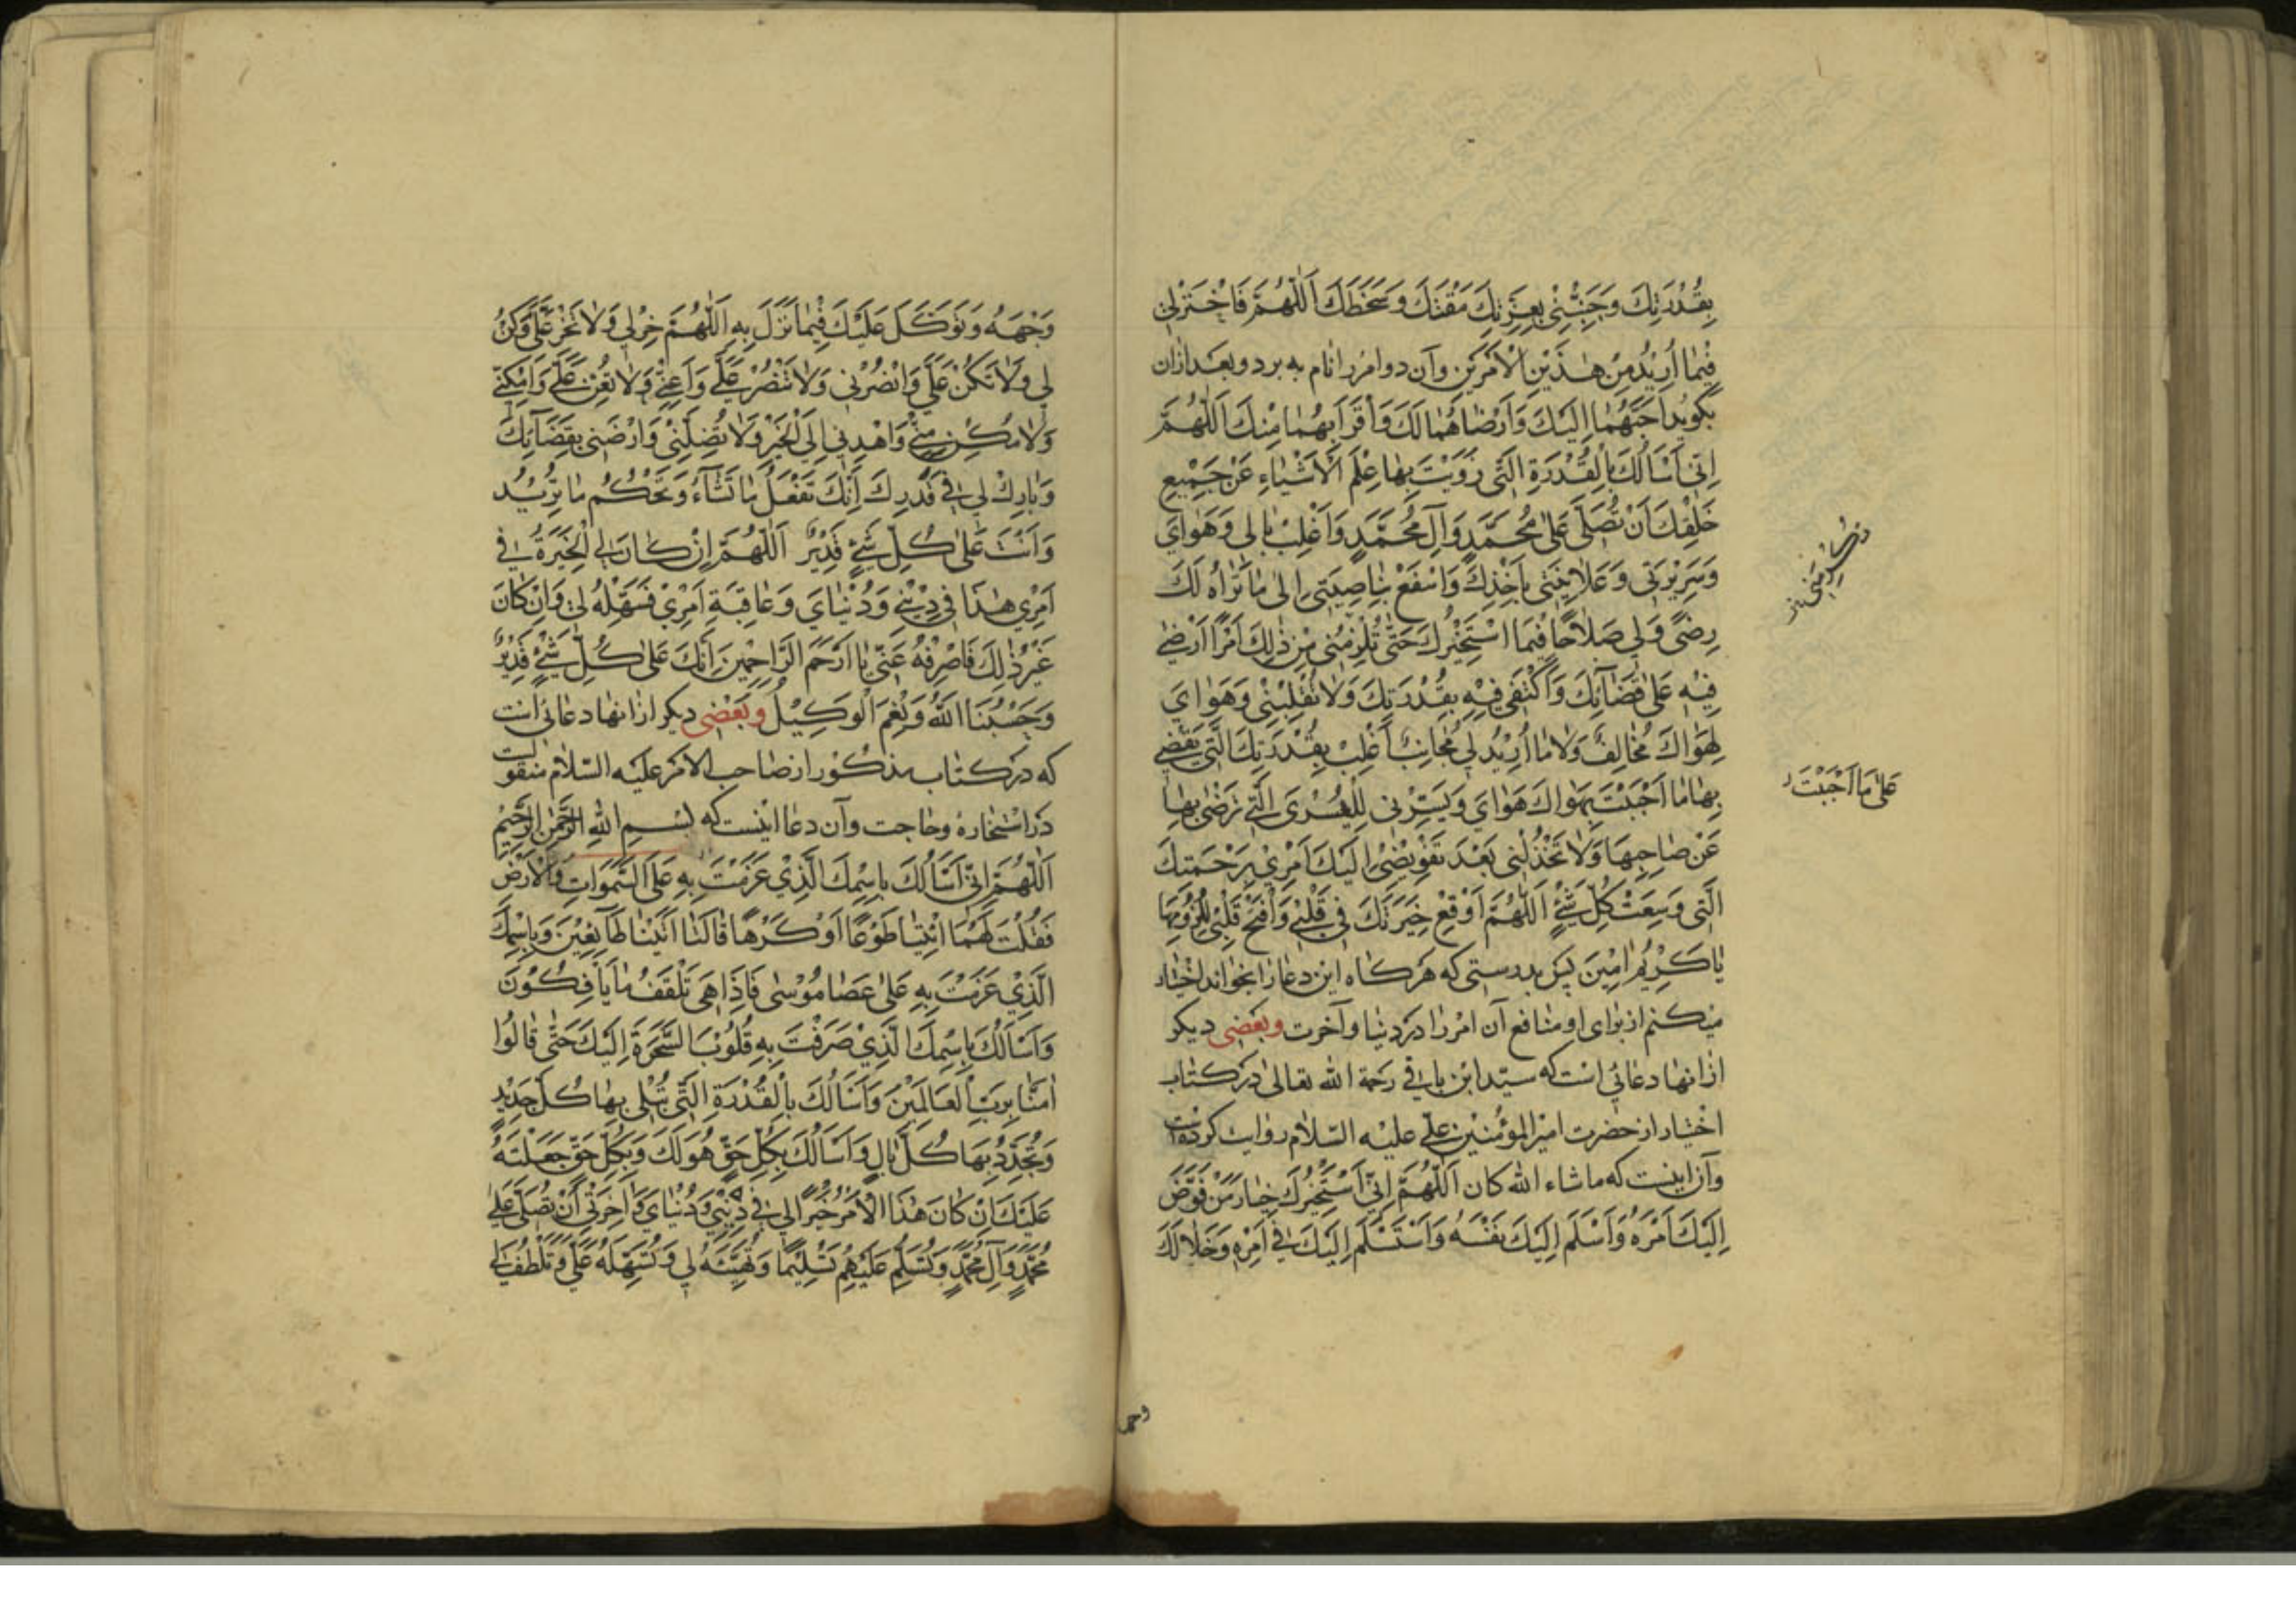 بِقُدْرَتِكَ وَجَنِّبْنِي بِعِزَّتِكَ مَقْتَكَ وَسَخَطَكَ اَللّٰهُمَّ فَاخْتَرْلِي
فِيْمَا اُرِيْدُ مِنْ هٰذَيْنِ الْاَمْرَيْنِ وآن دو امر را نام به برد و بعد ازان
بگوید اَحَبَّهُمَا اِلَيْكَ وَاَرْضَاهُمَا لَكَ وَاَقْرَبَهُمَا مِنْكَ اَللّٰهُمَّ
اِنِّي اَسْاَلُكَ بِالْقُدْرَةِ الَّتِي زَوَيْتَ بِهَا عِلْمَ الْاَشْيَاءِ عَنْ جَمِيْعِ
خَلْقِكَ اَنْ تُصَلِّيَ عَلٰى مُحَمَّدٍ وَآلِ مُحَمَّدٍ وَاَغْلِبْ بَالِي وَهَوَايَ
وَسَرِيْرَتِي وَعَلَانِيَتِي بِاَخْذِكَ وَاسْفَعْ بِنَاصِيَتِي اِلٰى مَا تَرَاهُ لَكَ
رِضًى وَلِي صَلَاحًا فِيْمَا اسْتَخِيْرُكَ حَتّٰى تُلْزِمَنِي مِنْ ذٰلِكَ اَمْرًا اَرْضٰى
فِيْهِ عَلٰى قَضَآئِكَ وَاَكْتَفِي فِيْهِ بِقُدْرَتِكَ وَلَا تَقْلِبْنِي وَهَوَايَ
لِهَوَاكَ مُخَالِفٌ وَلَا مَا اُرِيْدُ لِي مُجَانِبٌ اَغْلِبْ بِقُدْرَتِكَ الَّتِي تَقْضِي
بِهَا مَا اَحْبَبْتَ بِهَوَاكَ هَوَايَ وَيَسِّرْنِي لِلْيُسْرَى الَّتِي تَرْضٰى بِهَا
عَنْ صَاحِبِهَا وَلَا تَخْذُلْنِي بَعْدَ تَفْوِيْضِي اِلَيْكَ اَمْرِيْ بِرَحْمَتِكَ
الَّتِي وَسِعَتْ كُلَّ شَيْءٍ اَللّٰهُمَّ اَوْقِعْ خِيَرَتَكَ فِي قَلْبِي وَافْتَحْ قَلْبِي لِلُزُوْمِهَا
يَا كَرِيْمُ اٰمِيْنَ پس بدرستی که هرکاه این دعا را بخواند اختیار
میکنم از برای او منافع آن امر را در دنیا و آخرت وبعضی دیکر
ازانها دعائی است که سیّد ابن باقی رحمة الله تعالی درکتاب
اختیار از حضرت امیر المؤمنین علی علیه السّلام روایت کرده است
وآن اینست که ما شاء الله کان اَللّٰهُمَّ اِنِّي اَسْتَخِيْرُكَ خِيَارَ مَنْ فَوَّضَ
اِلَيْكَ اَمْرَهُ وَاَسْلَمَ اِلَيْكَ نَفْسَهُ وَاسْتَسْلَمَ اِلَيْكَ فِي اَمْرِهِ وَخَلَا لَكَ
عَلٰى مَا اَحْبَبْتَ
وجهه
وَجْهَهُ وَتَوَكَّلَ عَلَيْكَ فِيْمَا نَزَلَ بِهِ اَللّٰهُمَّ خِرْلِي وَلَا تَخِرْ عَلَيَّ وَكُنْ
لِي وَلَا تَكُنْ عَلَيَّ وَانْصُرْنِي وَلَا تَنْصُرْ عَلَيَّ وَاَعِنِّي وَلَا تُعِنْ عَلَيَّ وَاَمْكِنِّي
وَلَا تُمَكِّنْ مِنِّي وَاهْدِنِي اِلَى الْخَيْرِ وَلَا تُضِلَّنِي وَارْضِنِي بِقَضَآئِكَ
وَبَارِكْ لِي فِي قَدَرِكَ اِنَّكَ تَفْعَلُ مَا تَشَآءُ وَتَحْكُمُ مَا تُرِيْدُ
وَاَنْتَ عَلٰى كُلِّ شَيْءٍ قَدِيْرٌ اَللّٰهُمَّ اِنْ كَانَ لِي الْخِيَرَةُ فِي
اَمْرِي هٰذَا فِي دِيْنِي وَدُنْيَايَ وَعَاقِبَةِ اَمْرِيْ فَسَهِّلْهُ لِي وَاِنْ كَانَ
غَيْرَ ذٰلِكَ فَاصْرِفْهُ عَنِّي يَا اَرْحَمَ الرَّاحِمِيْنَ اِنَّكَ عَلٰى كُلِّ شَيْءٍ قَدِيْرٌ
وَحَسْبُنَا اللهُ وَنِعْمَ الْوَكِيْلُ وبَعْضی دیکر ازانها دعائی است
که درکتاب مذکور از صاحب الامر علیه السّلام منقولست
در استخاره وحاجت وآن دعا اینست که بِسْمِ اللهِ الرَّحْمٰنِ الرَّحِيْمِ
اَللّٰهُمَّ اِنِّي اَسْاَلُكَ بِاسْمِكَ الَّذِيْ عَزَمْتَ بِهِ عَلَى السَّمٰوَاتِ وَالْاَرْضِ
فَقُلْتَ لَهُمَا ائْتِيَا طَوْعًا اَوْ كَرْهًا قَالَتَا اَتَيْنَا طَآئِعِيْنَ وَبِاسْمِكَ
الَّذِيْ عَزَمْتَ بِهِ عَلٰى عَصَا مُوْسٰى فَاِذَا هِيَ تَلْقَفُ مَا يَاْفِكُوْنَ
وَاَسْاَلُكَ بِاسْمِكَ الَّذِيْ صَرَفْتَ بِهِ قُلُوْبَ السَّحَرَةِ اِلَيْكَ حَتّٰى قَالُوْا
اٰمَنَّا بِرَبِّ الْعَالَمِيْنَ وَاَسْاَلُكَ بِالْقُدْرَةِ الَّتِي تُبْلِي بِهَا كُلَّ جَدِيْدٍ
وَتُجَدِّدُ بِهَا كُلَّ بَالٍ وَاَسْاَلُكَ بِكُلِّ حَقٍّ هُوَ لَكَ وَبِكُلِّ حَقٍّ جَعَلْتَهُ
عَلَيْكَ اِنْ كَانَ هٰذَا الْاَمْرُ خَيْرًا لِي فِي دِيْنِي وَدُنْيَايَ وَاٰخِرَتِي اَنْ تُصَلِّيَ عَلٰى
مُحَمَّدٍ وَآلِ مُحَمَّدٍ وَتُسَلِّمَ عَلَيْهِمْ تَسْلِيْمًا وَتُهَيِّئَهُ لِي وَتُسَهِّلَهُ عَلَيَّ وَتَلْطُفَ لِي